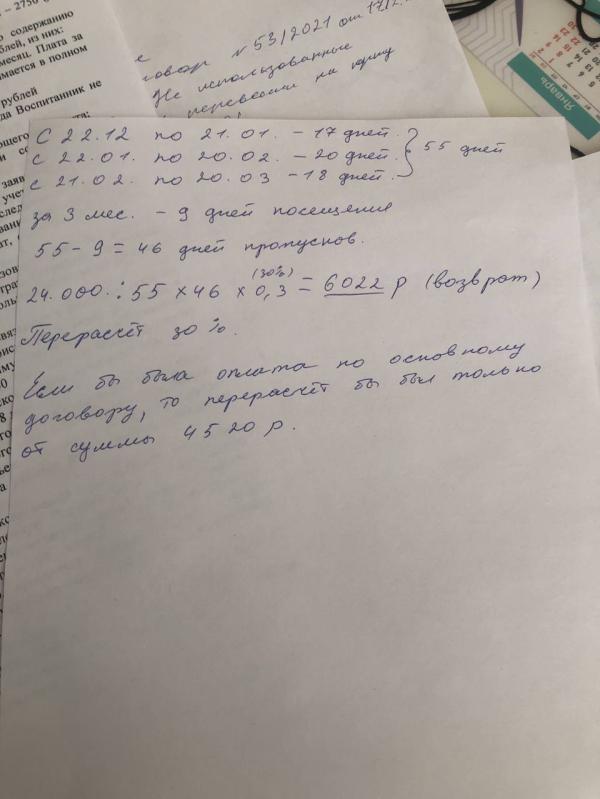 – 2750
содержанию
блей, из них:
месяц. Плата за
имается в полном
рублей
да Воспитанник не
N 53/2021 от 17/2.
использованные
на
Январь
С 22.12 по 21.01. – 17 дней.
с 22.01. по 20.02. – 20 дней. 55 дней
с 21.02. по 20.03 – 18 дней.
за 3 мес. – 9 дней посещения
55 – 9 = 46 дней пропусков.
(30%)
24.000 : 55 × 46 × 0,3 = 6022 р (возврат)
Перерасчёт 30%.
Если бы была оплата по основному
договору, то перерасчёт бы был только
от суммы 4520 р.